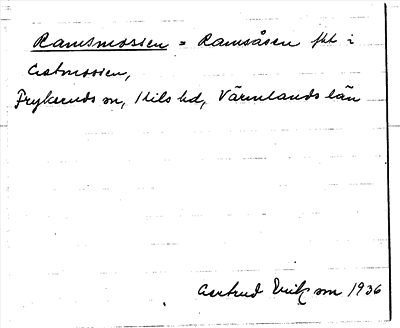 Ramsmossen = Ramsåsen fht i
Astmossen,
Frykeruds sn, Kils hd, Värmlands län
Gertrud Erikson 1936